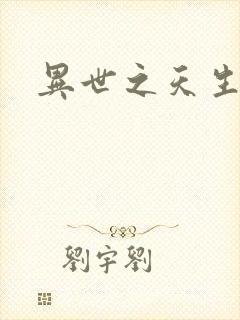 異世之天生
劉宇劉